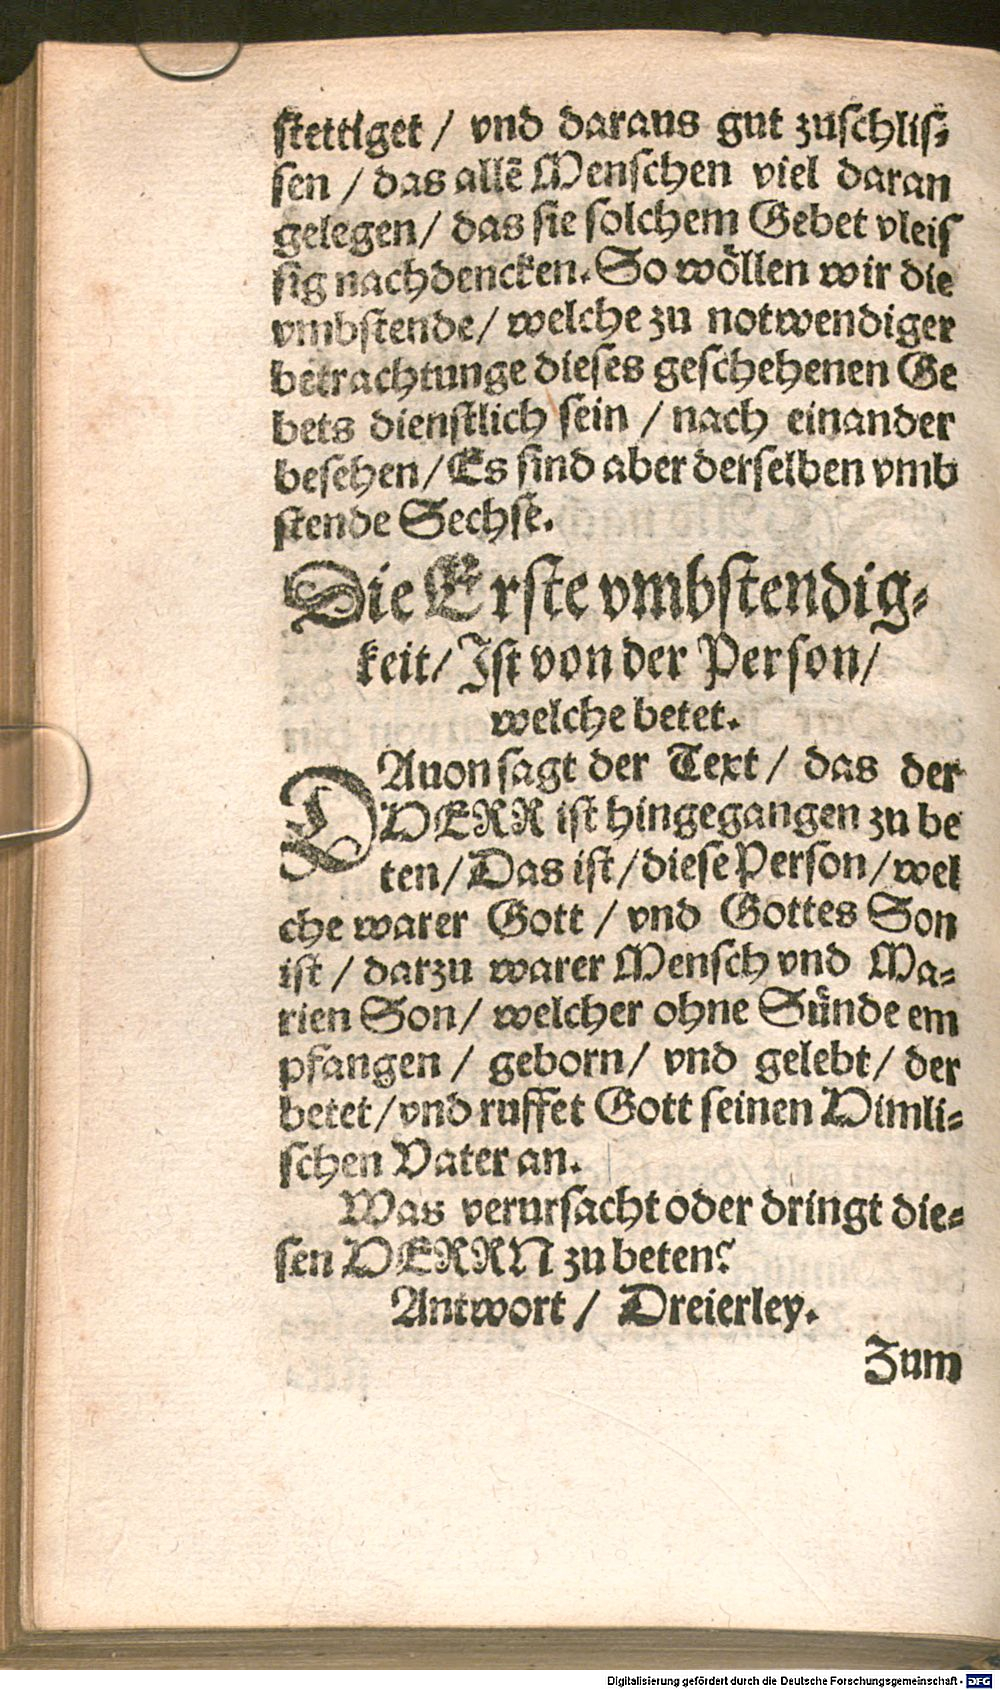 stettiget / vnd daraus gut zuschlis⸗
sen / das allē Menschen viel daran
gelegen / das sie solchem Gebet vleis
sig nachdencken. So wöllen wir die
vmbstende / welche zu notwendiger
betrachtunge dieses geschehenen Ge
bets dienstlich sein / nach einander
besehen / Es sind aber derselben vmb
stende Sechse.
Die Erste vmbstendig⸗
keit / Ist von der Person /
welche betet.
DAuon sagt der Text / das der
HERR ist hingegangen zu be
ten / Das ist / diese Person / wel
che warer Gott / vnd Gottes Son
ist / darzu warer Mensch vnd Ma⸗
rien Son / welcher ohne Sünde em
pfangen / geborn / vnd gelebt / der
betet / vnd ruffet Gott seinen Himli⸗
schen Vater an.
Was verursacht oder dringt die⸗
sen HERRN zu beten?
Antwort / Dreierley.
Zum
Digitalisierung gefördert durch die Deutsche Forschungsgemeinschaft - DFG